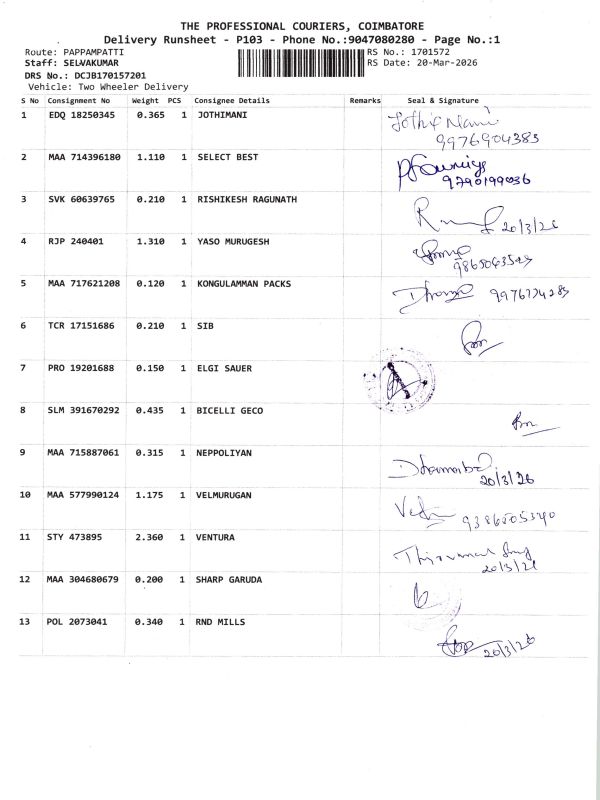 THE PROFESSIONAL COURIERS, COIMBATORE
Delivery Runsheet - P103 - Phone No.:9047080280 - Page No.:1
Route: PAPPAMPATTI RS No.: 1701572
Staff: SELVAKUMAR RS Date: 20-Mar-2026
DRS No.: DCJB170157201
Vehicle: Two Wheeler Delivery
S No Consignment No Weight PCS Consignee Details Remarks Seal & Signature
1 EDQ 18250345 0.365 1 JOTHIMANI
9976904383
2 MAA 714396180 1.110 1 SELECT BEST
9790199036
3 SVK 60639765 0.210 1 RISHIKESH RAGUNATH
20/3/26
4 RJP 240401 1.310 1 YASO MURUGESH
5 MAA 717621208 0.120 1 KONGULAMMAN PACKS
6 TCR 17151686 0.210 1 SIB
7 PRO 19201688 0.150 1 ELGI SAUER
8 SLM 391670292 0.435 1 BICELLI GECO
9 MAA 715887061 0.315 1 NEPPOLIYAN
20/3/26
10 MAA 577990124 1.175 1 VELMURUGAN
11 STY 473895 2.360 1 VENTURA
20/3/26
12 MAA 304680679 0.200 1 SHARP GARUDA
13 POL 2073041 0.340 1 RND MILLS
20/3/26